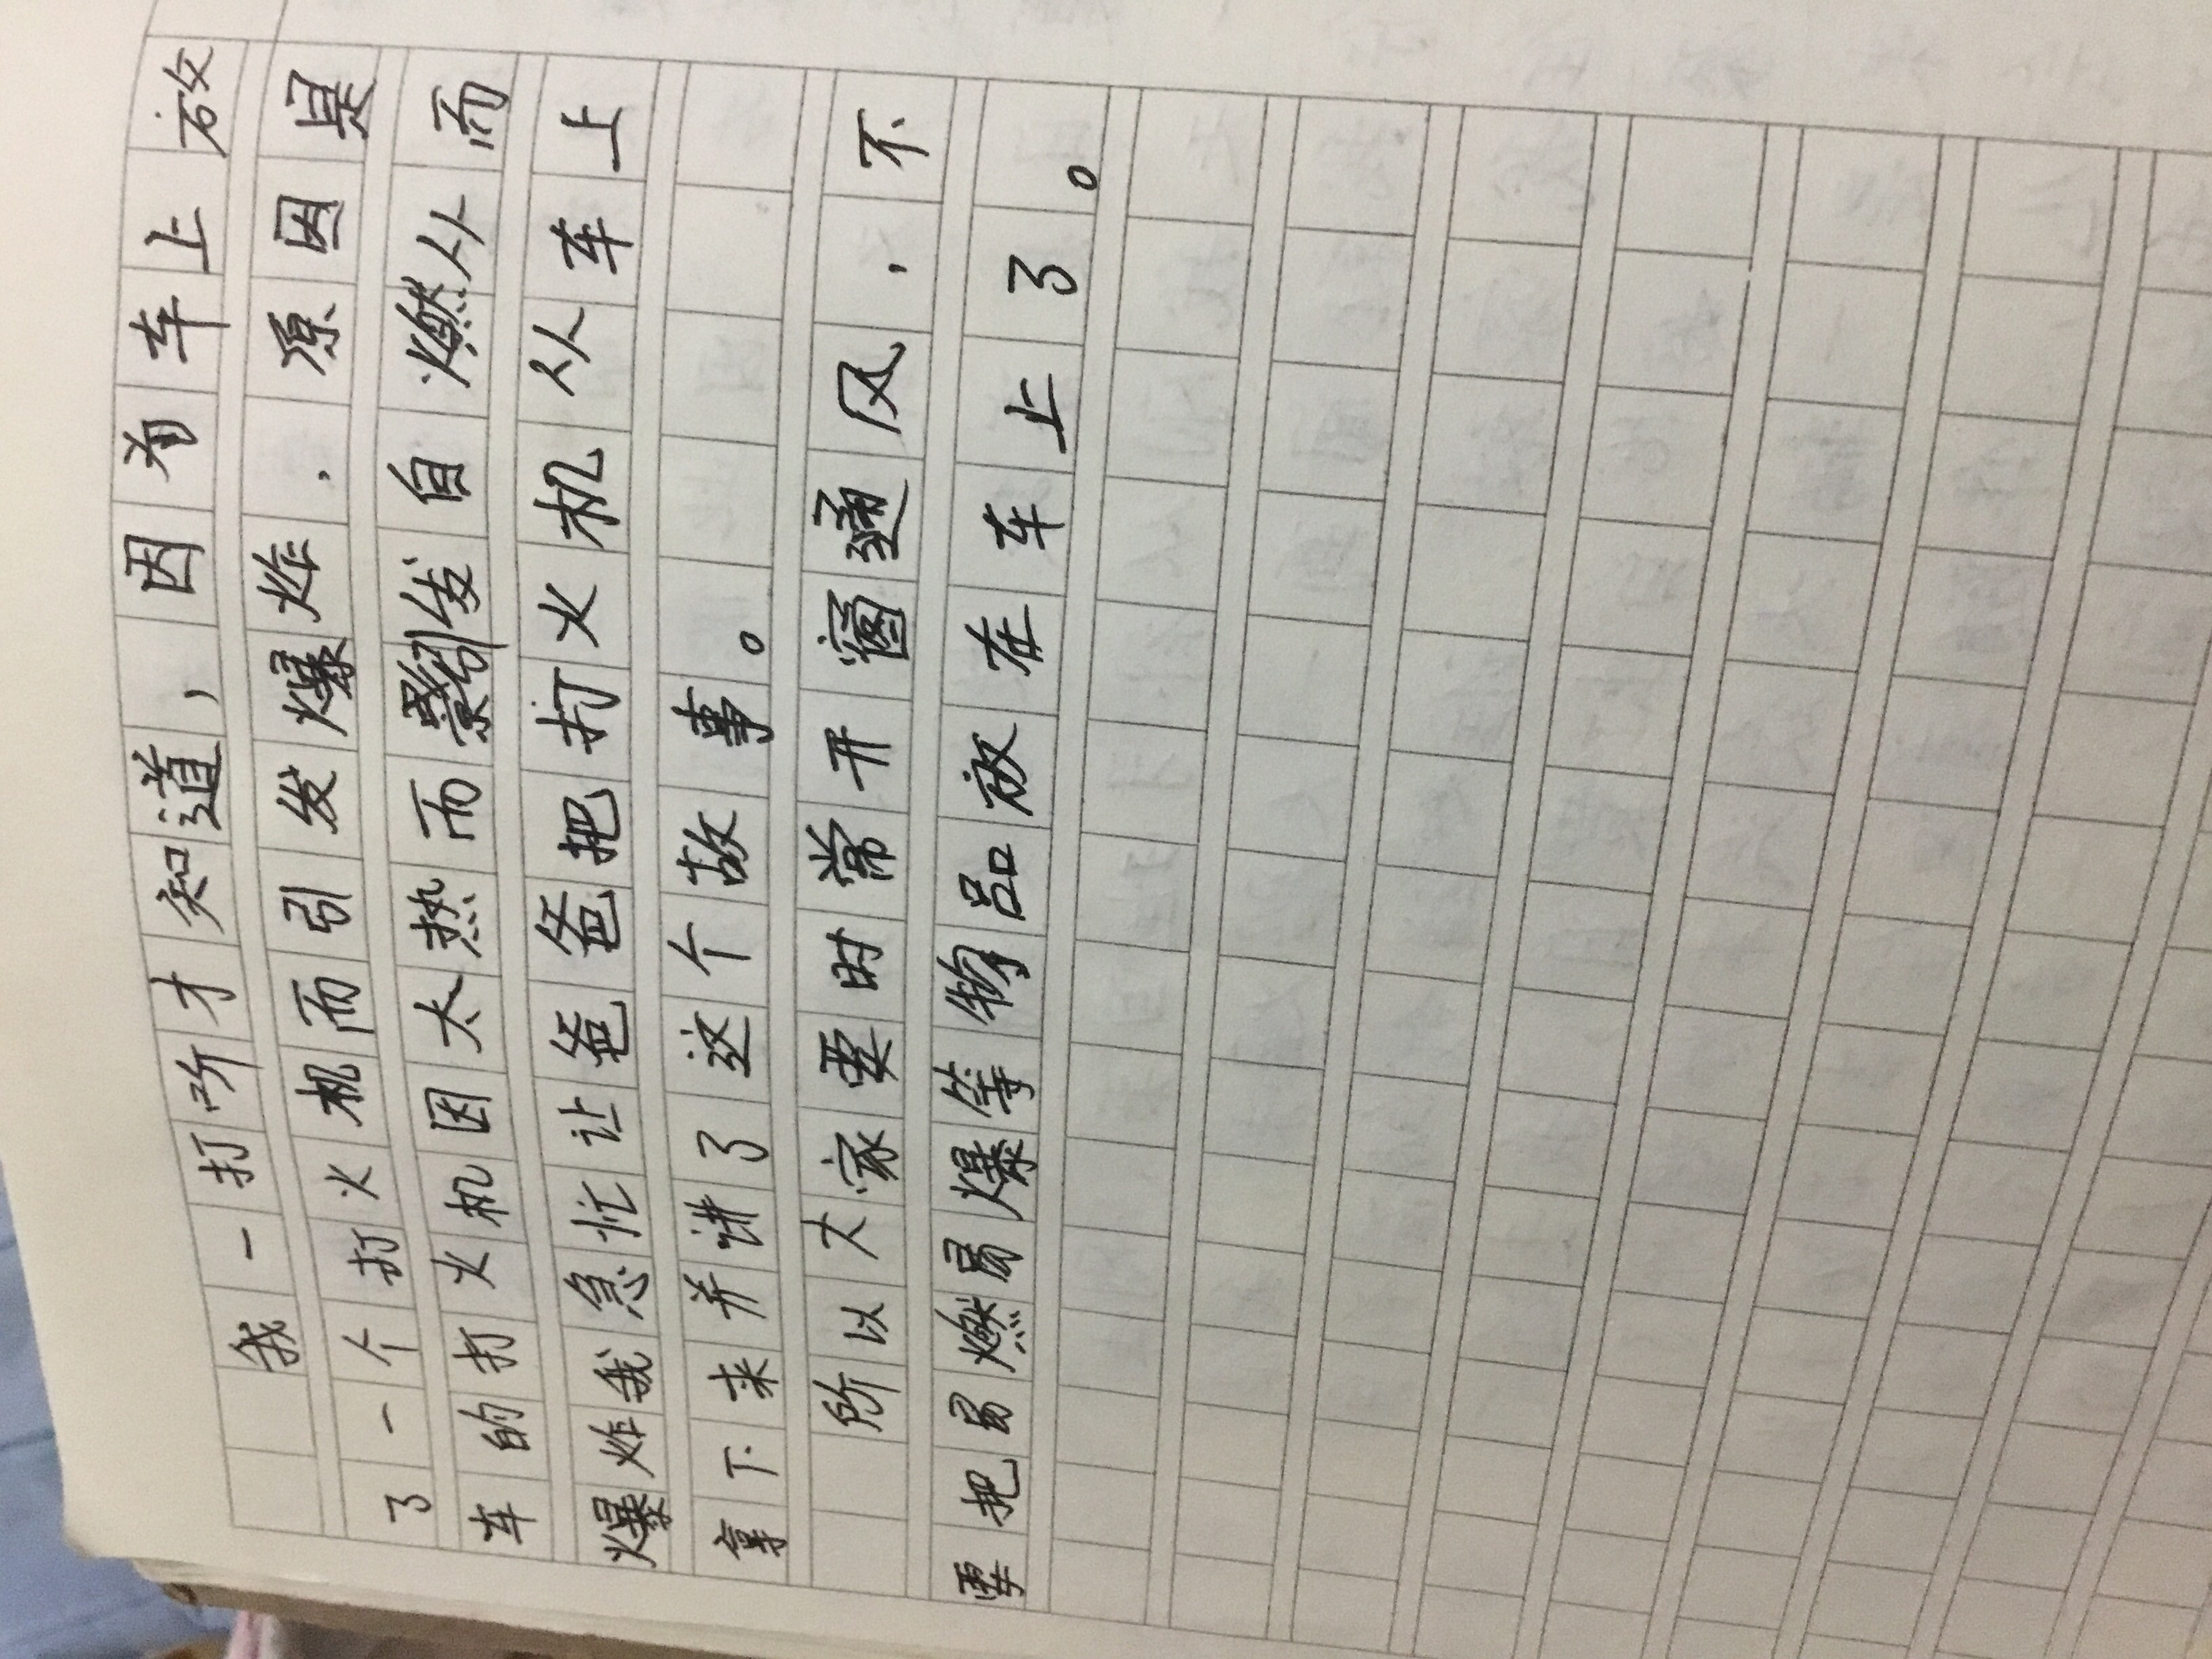 我一打听才知道，因为车上放
了一个打火机而引发爆炸，原因是
车的打火机因太热而影引发自燃从而
爆炸我急忙让爸爸把打火机从车上
拿下来并讲了这个故事。
所以大家要时常开窗通风，不
要把易燃易爆等物品放在车上了。